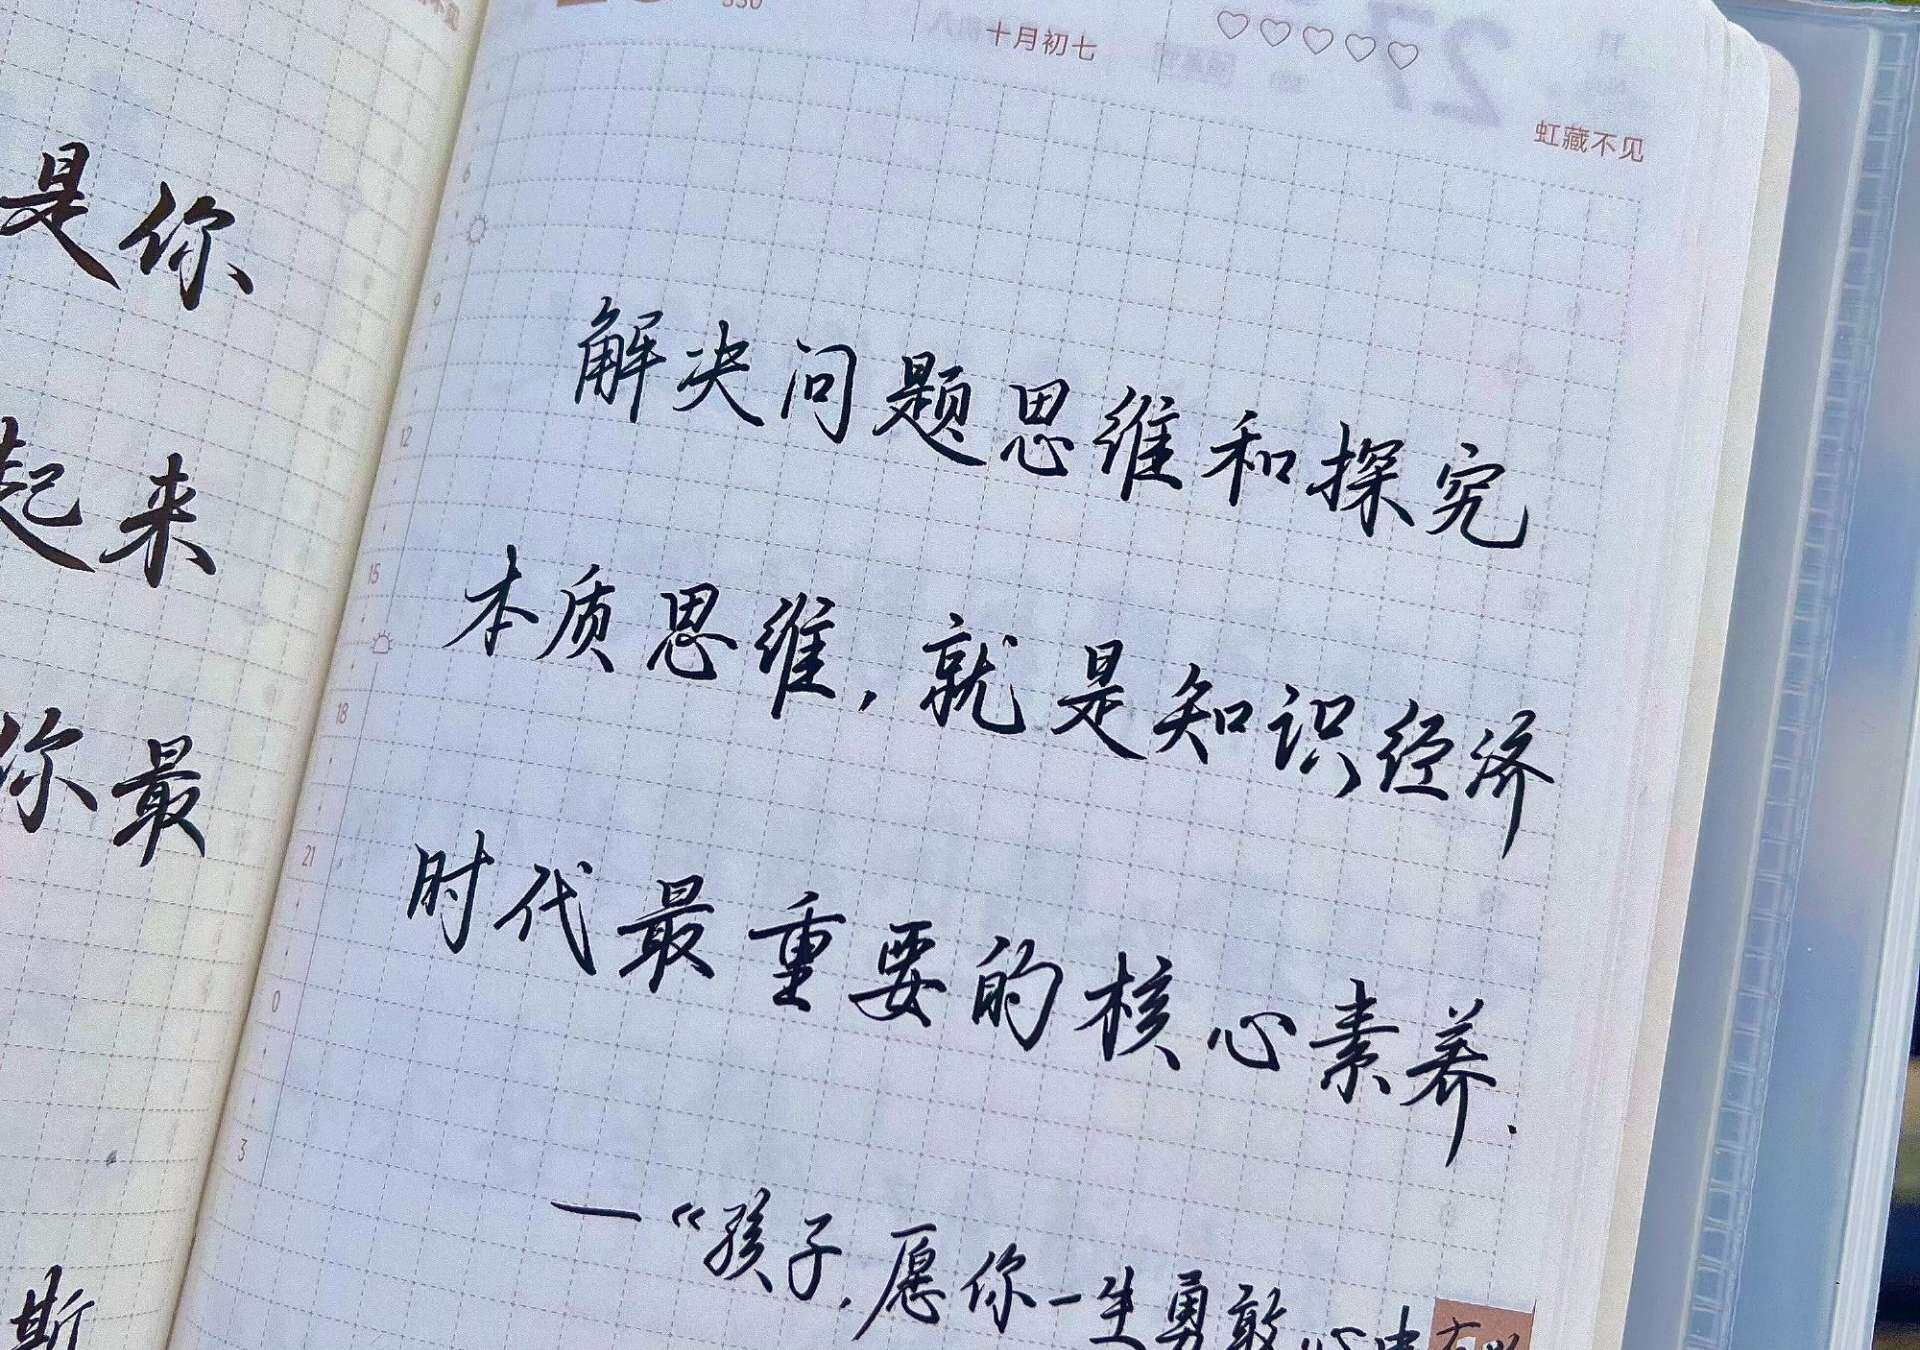 是你
起来
你最
斯
330
十月初七
27
虹藏不见
6
9
12
15
18
21
0
3
解决问题思维和探究
本质思维,就是知识经济
时代最重要的核心素养.
—《孩子,愿你一生勇敢,心中有